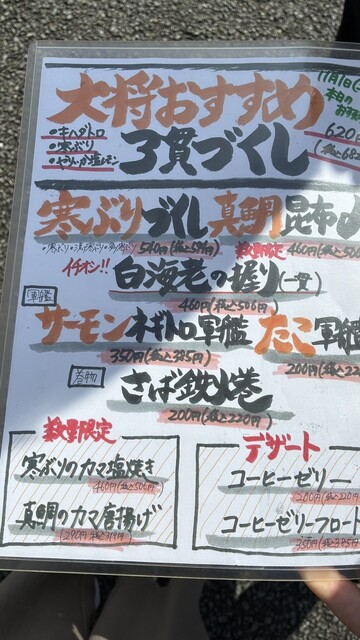 大将おすすめ
11月1日
本日の
・キハダトロ
・寒ぶり
3貫づくし
620
寒ぶりづくし 真鯛昆布
540円(税込594円)
数量限定 460円(税込506
イチオシ!! 白海老の握り(一貫)
460円(税込506円)
軍艦
サーモンネギトロ軍艦 たこ軍艦
350円(税込385円)
200円(税込220
巻物
さば鉄火巻
200円(税込220円)
数量限定
寒ぶりのカマ塩焼き
460円(税込506円)
真鯛のカマ唐揚げ
290円(税込319円)
デザート
コーヒーゼリー
200円(税込220円)
コーヒーゼリーフロート
350円(税込385円